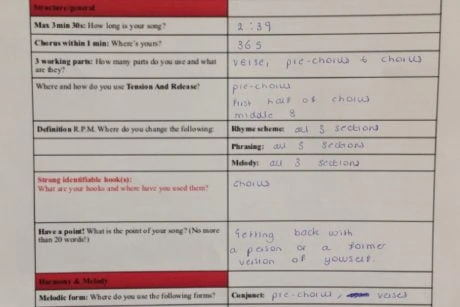 Structure/general
Max 3 min 30s: How long is your song? 2:39
Chorus within 1 min: Where's yours? 36s
3 working parts: How many parts do you use and what are they? verse, pre-chorus & chorus
Where and how do you use Tension And Release? pre-chorus
first half of chorus
middle 8
Definition R.P.M. Where do you change the following: Rhyme scheme: all 3 sections
Phrasing: all 3 sections
Melody: all 3 sections
Strong identifiable hook(s):
What are your hooks and where have you used them? chorus
Have a point! What is the point of your song? (No more than 20 words!) Getting back with
a person or a former
version of yourself.
Harmony & Melody
Melodic form: Where do you use the following forms? Conjunct: pre-chorus, verses